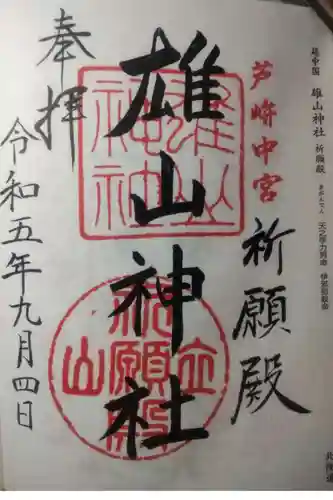 越中国 雄山神社 祈願殿 きがんでん 天之手力男命 伊邪那岐命
芦峅中宮
祈願殿
雄山神社
雄山神社
立山
祈願殿
奉拝
令和五年九月四日